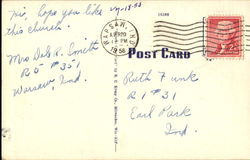 Hi, hope you like
this church.
Mrs Deb R. Smith
R 5 # 351
Warsaw, Ind.
WARSAW, IND.
APR 20
PM
1956
POST CARD
Ruth Funk
R 1 # 31
Earl Park
Ind.